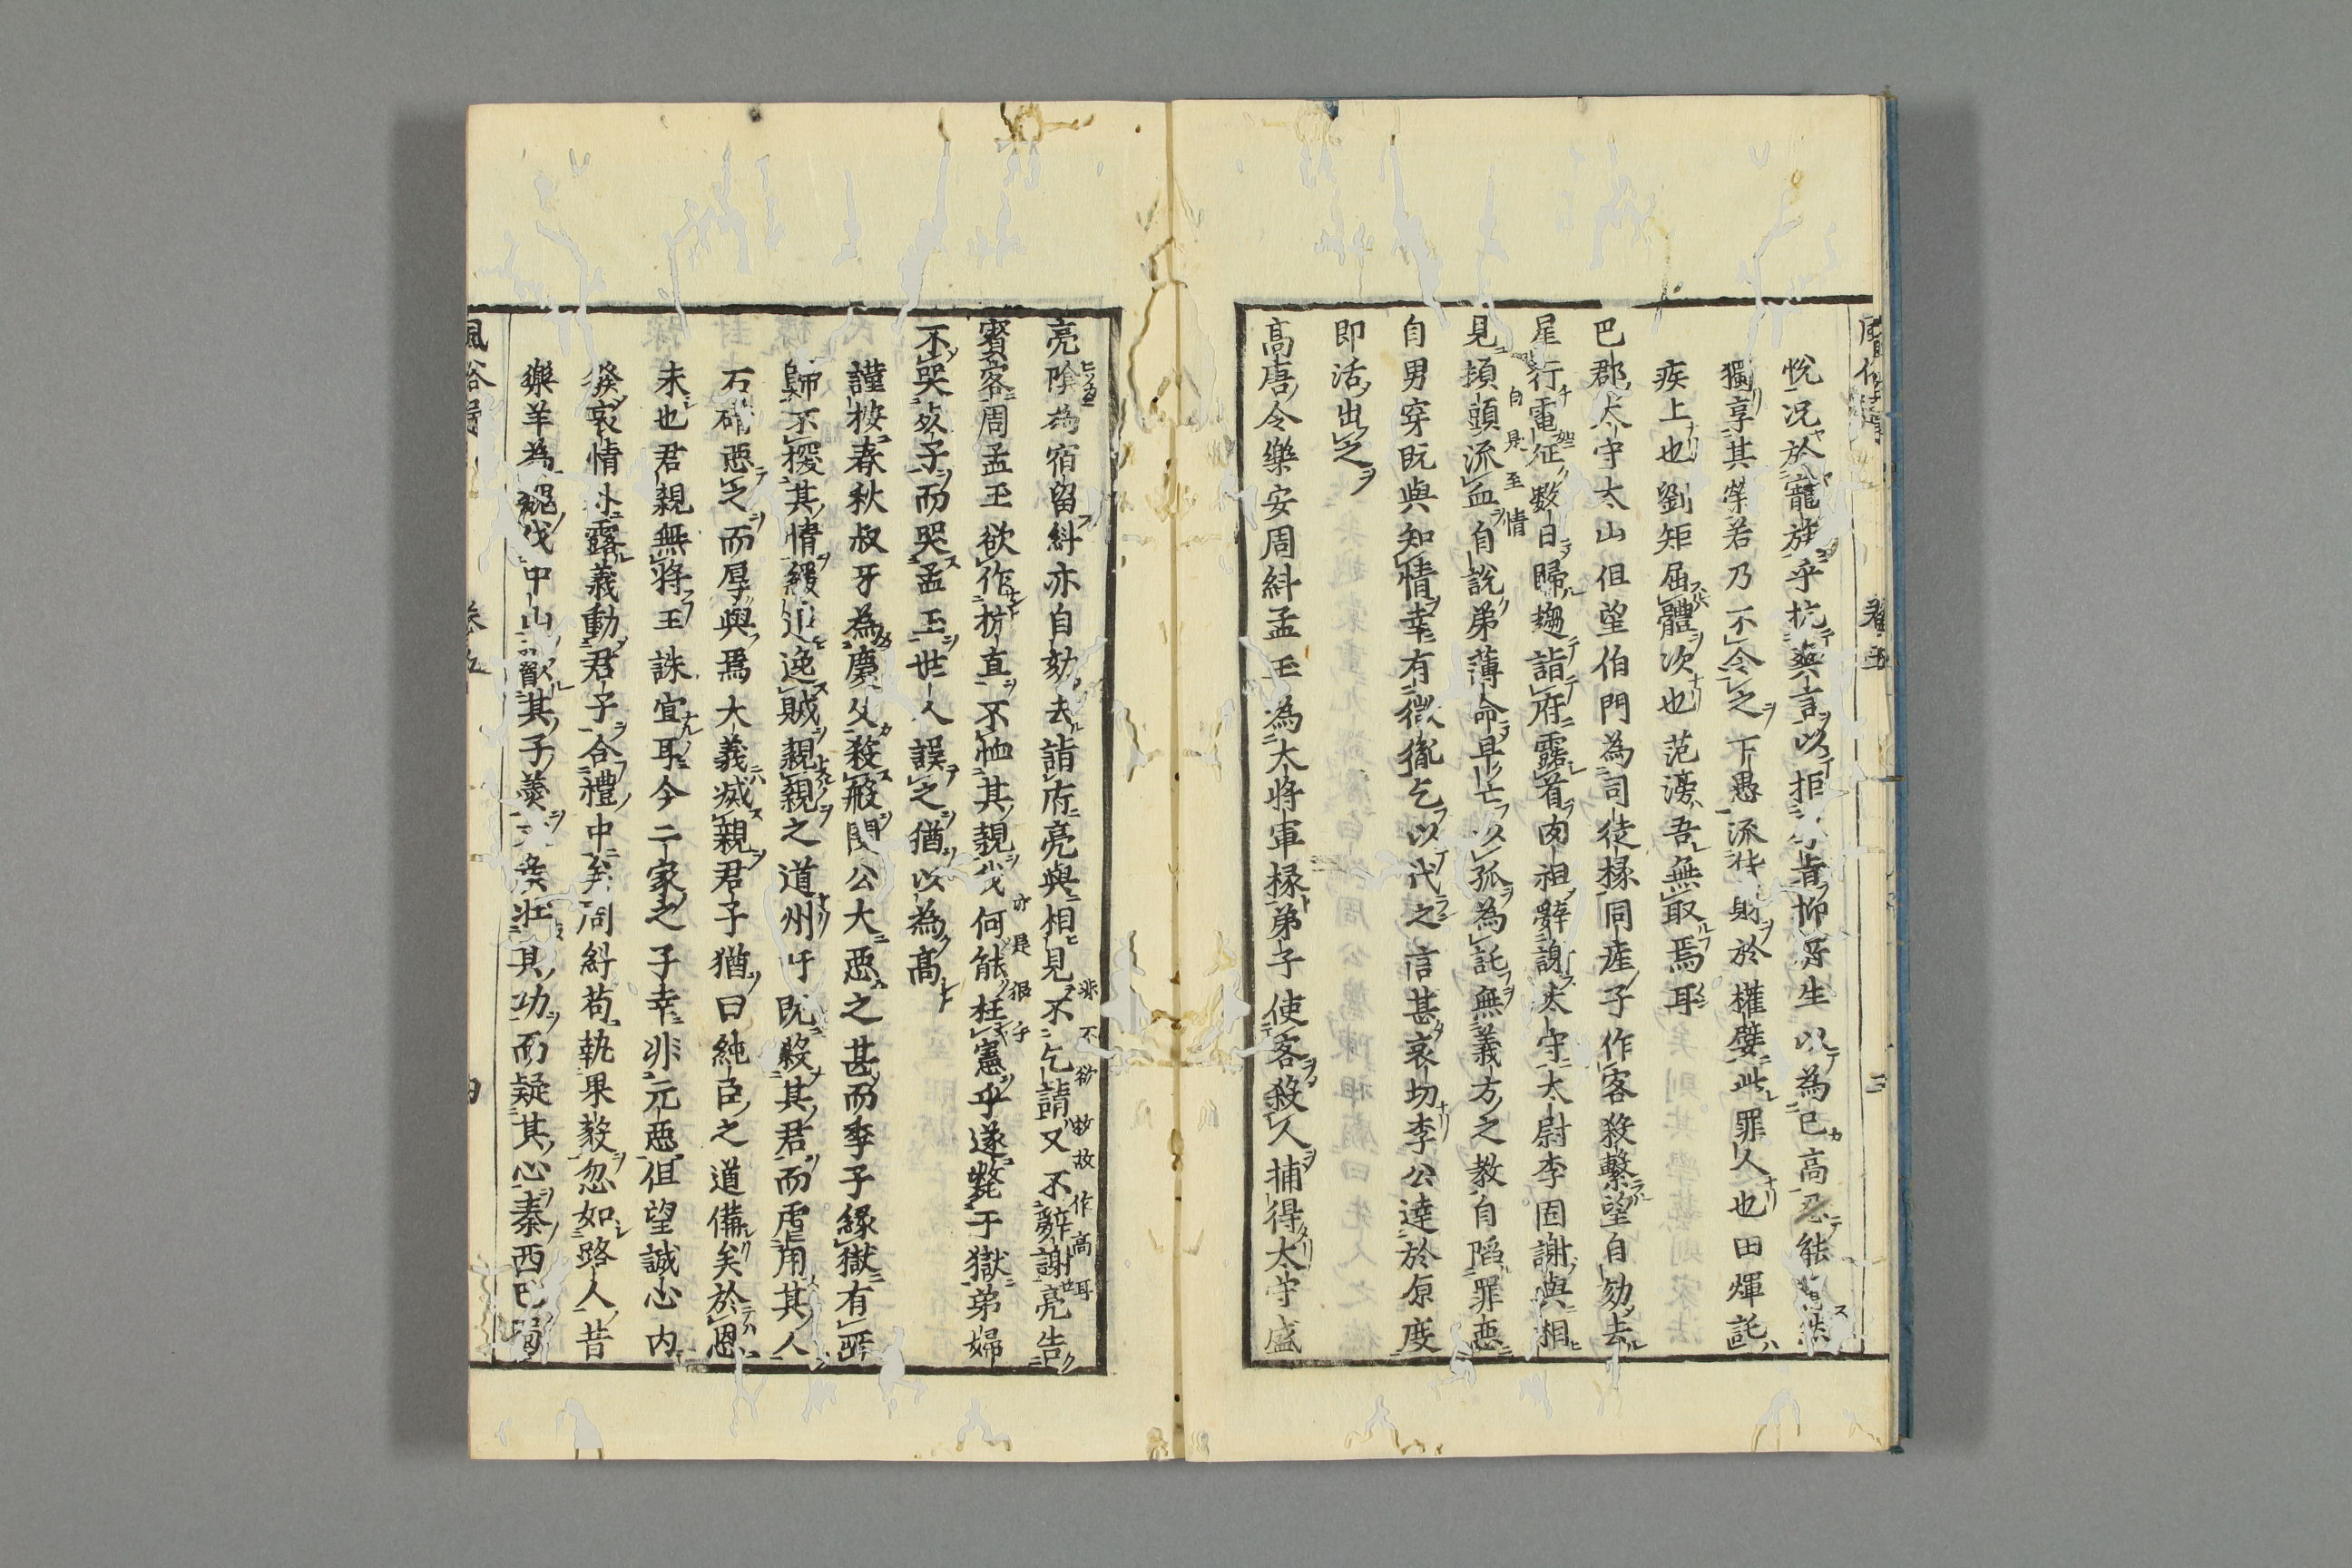 悦况於寵族乎抗爽言以拒者仰生以為己高忍能
獨享其榮若乃不令之下愚流貨財於權嬖此罪人也田煇託
疾上也劉矩屈體次也范滂吾無取焉耳
巴郡太守太山但望伯門為司徒掾同産子作客殺繫望自劾去
星行電征數日歸趨詣府露首肉袒辭謝太守太尉李固謝與相
見頓頭流血自說弟薄命早亡以孤為託無義方之教自陷罪惡
自男穿既與知情幸有微胤乞以代之言甚哀切李公達於原度
即活出之
高唐令樂安周糾孟玉為大將軍掾弟子使客殺人捕得太守盛
亮陰為宿留糾亦自劾去詣府亮與相見不乞請又不辭謝亮告
賓客周孟玉欲作抗直不恤其親我何能枉憲乎遂斃于獄弟婦
不哭死子而哭孟玉世人誤之猶以為高
謹按春秋叔牙為慶父殺般閔公大惡之甚而季子緣獄有所
歸不探其情緩追逸賊親親之道州吁既殺其君而虐用其人
石碏惡之而厚與焉大義滅親君子猶曰純臣之道備矣於恩
未也君親無將王誅宜耳今二家之子幸非元惡但望誠心内
發哀情外露義動君子合禮中矣周糾苟執果毅忽如路人昔
樂羊為魏伐中山歠其子羹文侯壯其功而疑其心秦西巴
卷五